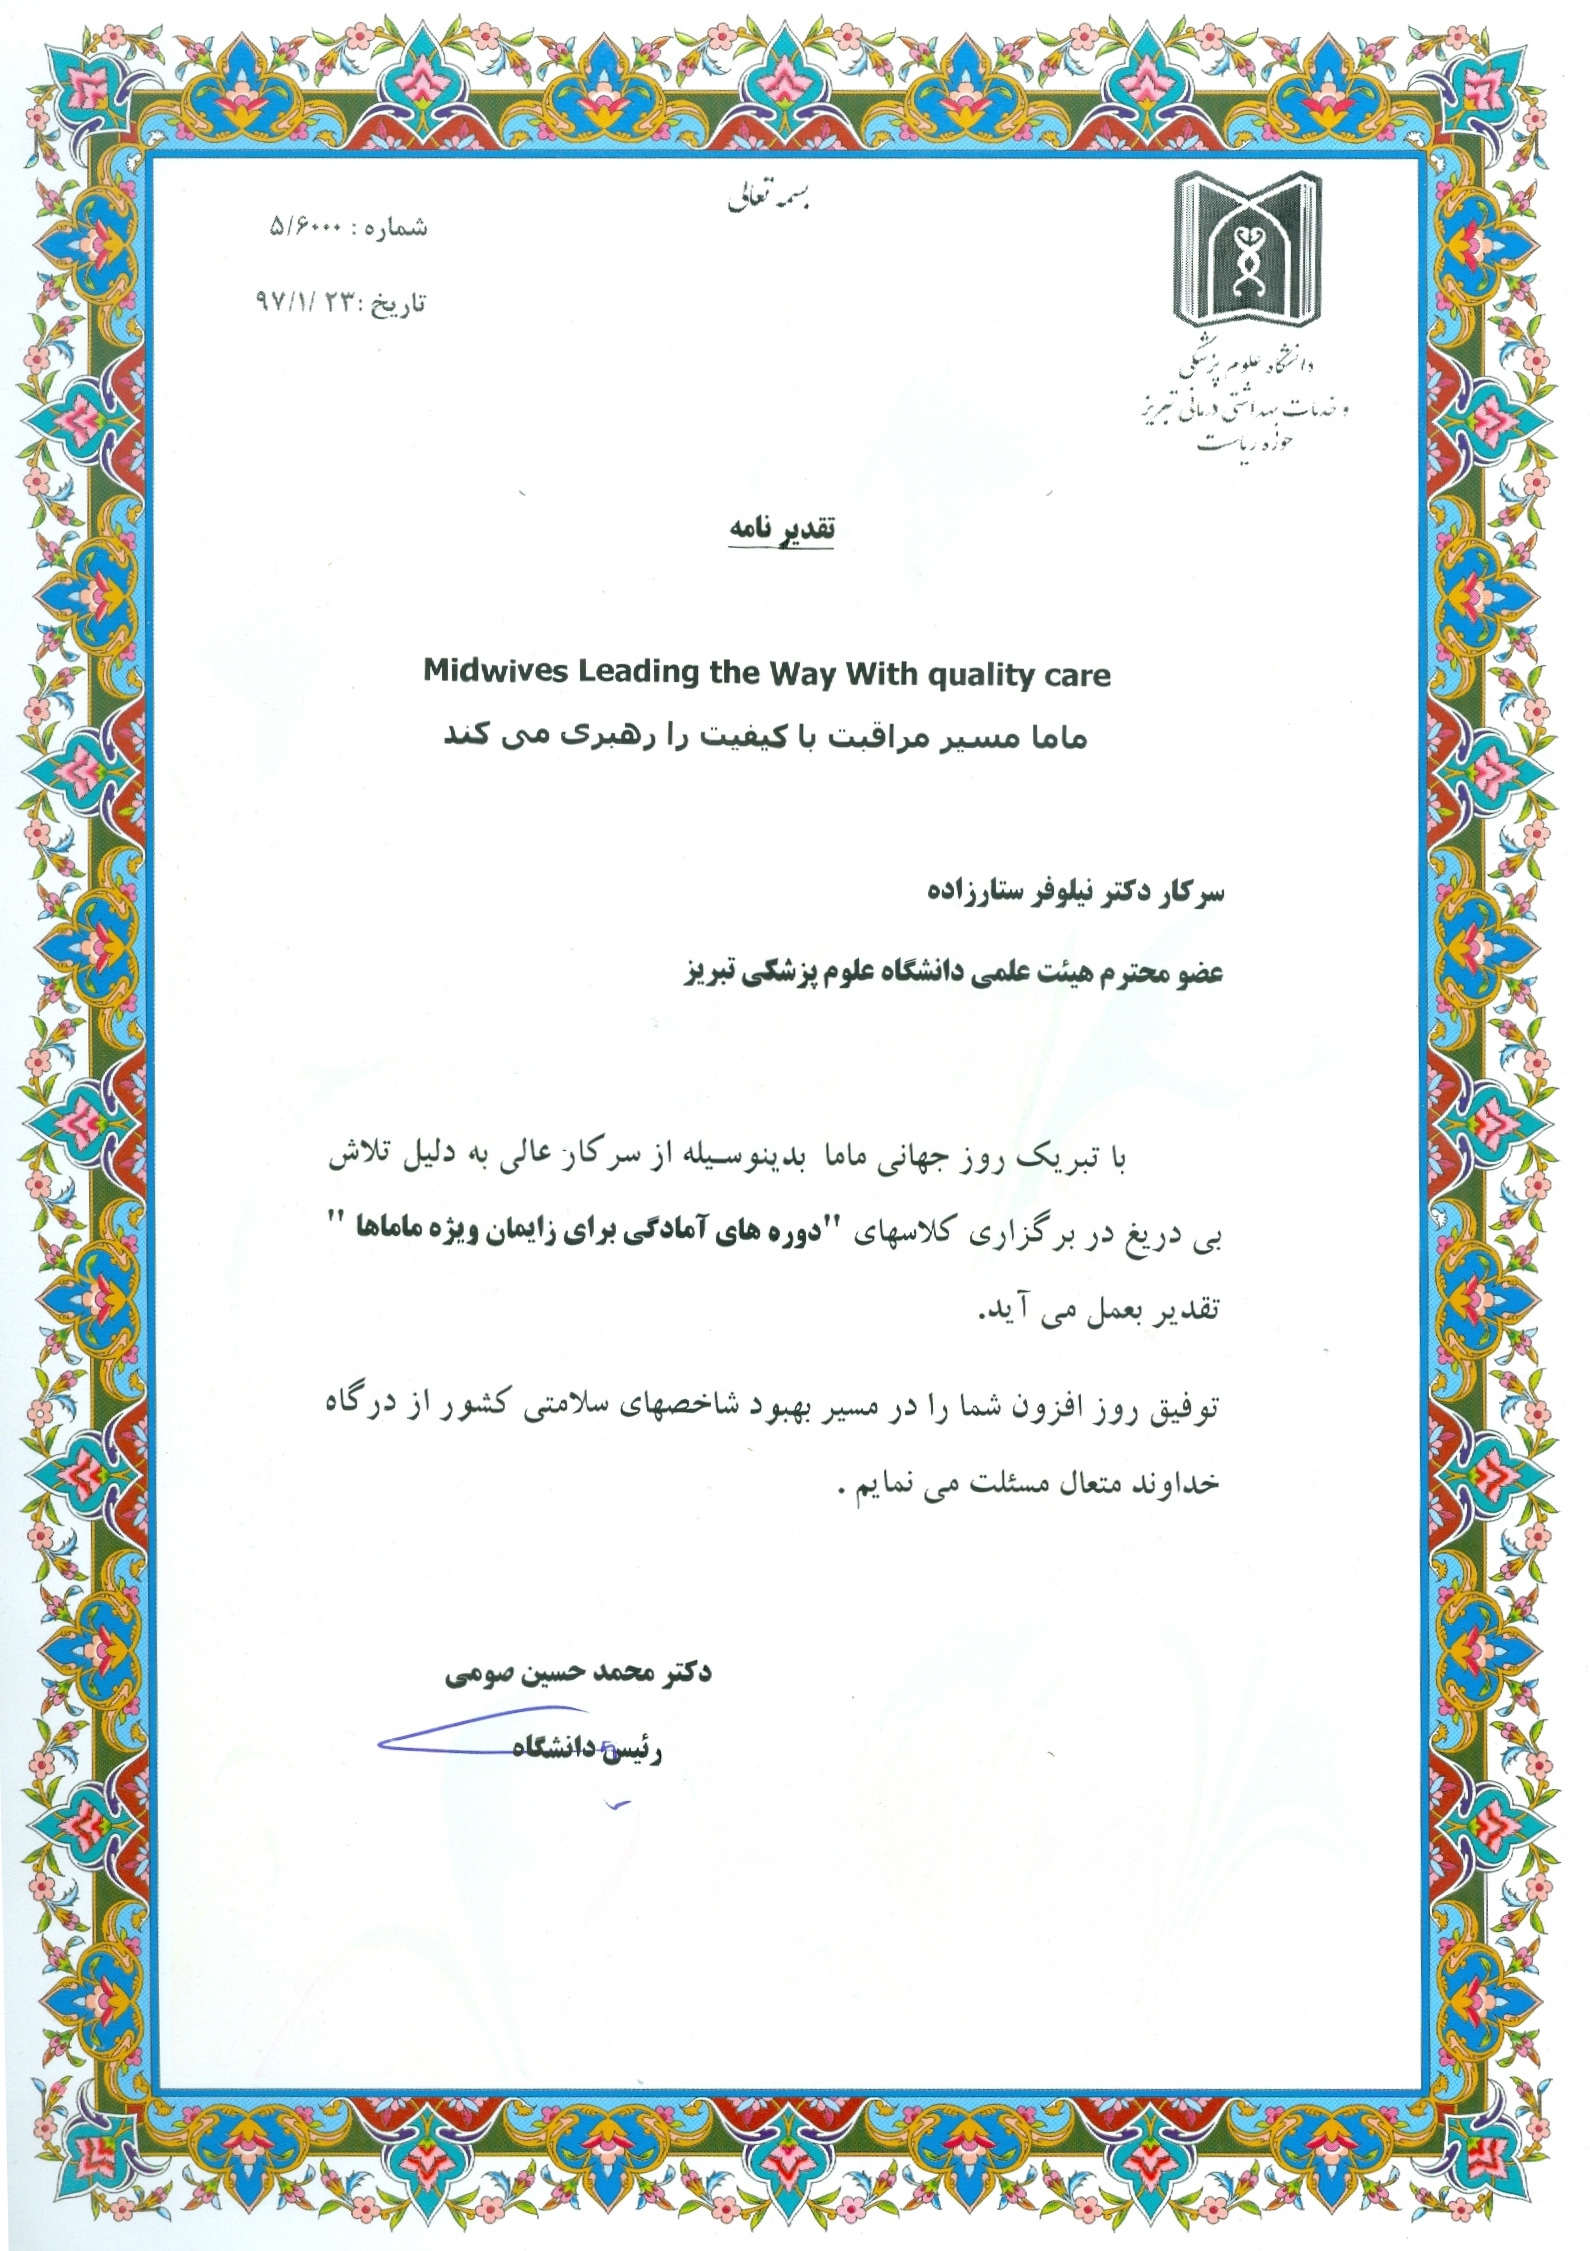 بسمه تعالی
شماره : ۵/۶۰۰۰
تاریخ :۲۳ /۹۷/۱
دانشگاه علوم پزشکی
و خدمات بهداشتی درمانی تبریز
حوزه ریاست
تقدیر نامه
Midwives Leading the Way With quality care
ماما مسیر مراقبت با کیفیت را رهبری می کند
سرکار دکتر نیلوفر ستارزاده
عضو محترم هیئت علمی دانشگاه علوم پزشکی تبریز
با تبریک روز جهانی ماما بدینوسیله از سرکار عالی به دلیل تلاش
بی دریغ در برگزاری کلاسهای "دوره های آمادگی برای زایمان ویژه ماماها "
تقدیر بعمل می آید.
توفیق روز افزون شما را در مسیر بهبود شاخصهای سلامتی کشور از درگاه
خداوند متعال مسئلت می نمایم .
دکتر محمد حسین صومی
رئیس دانشگاه